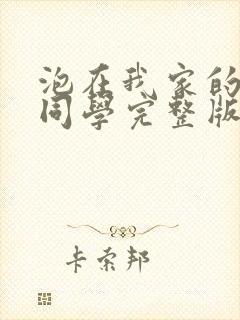 泡在我家的
同學完整版
卡索邦